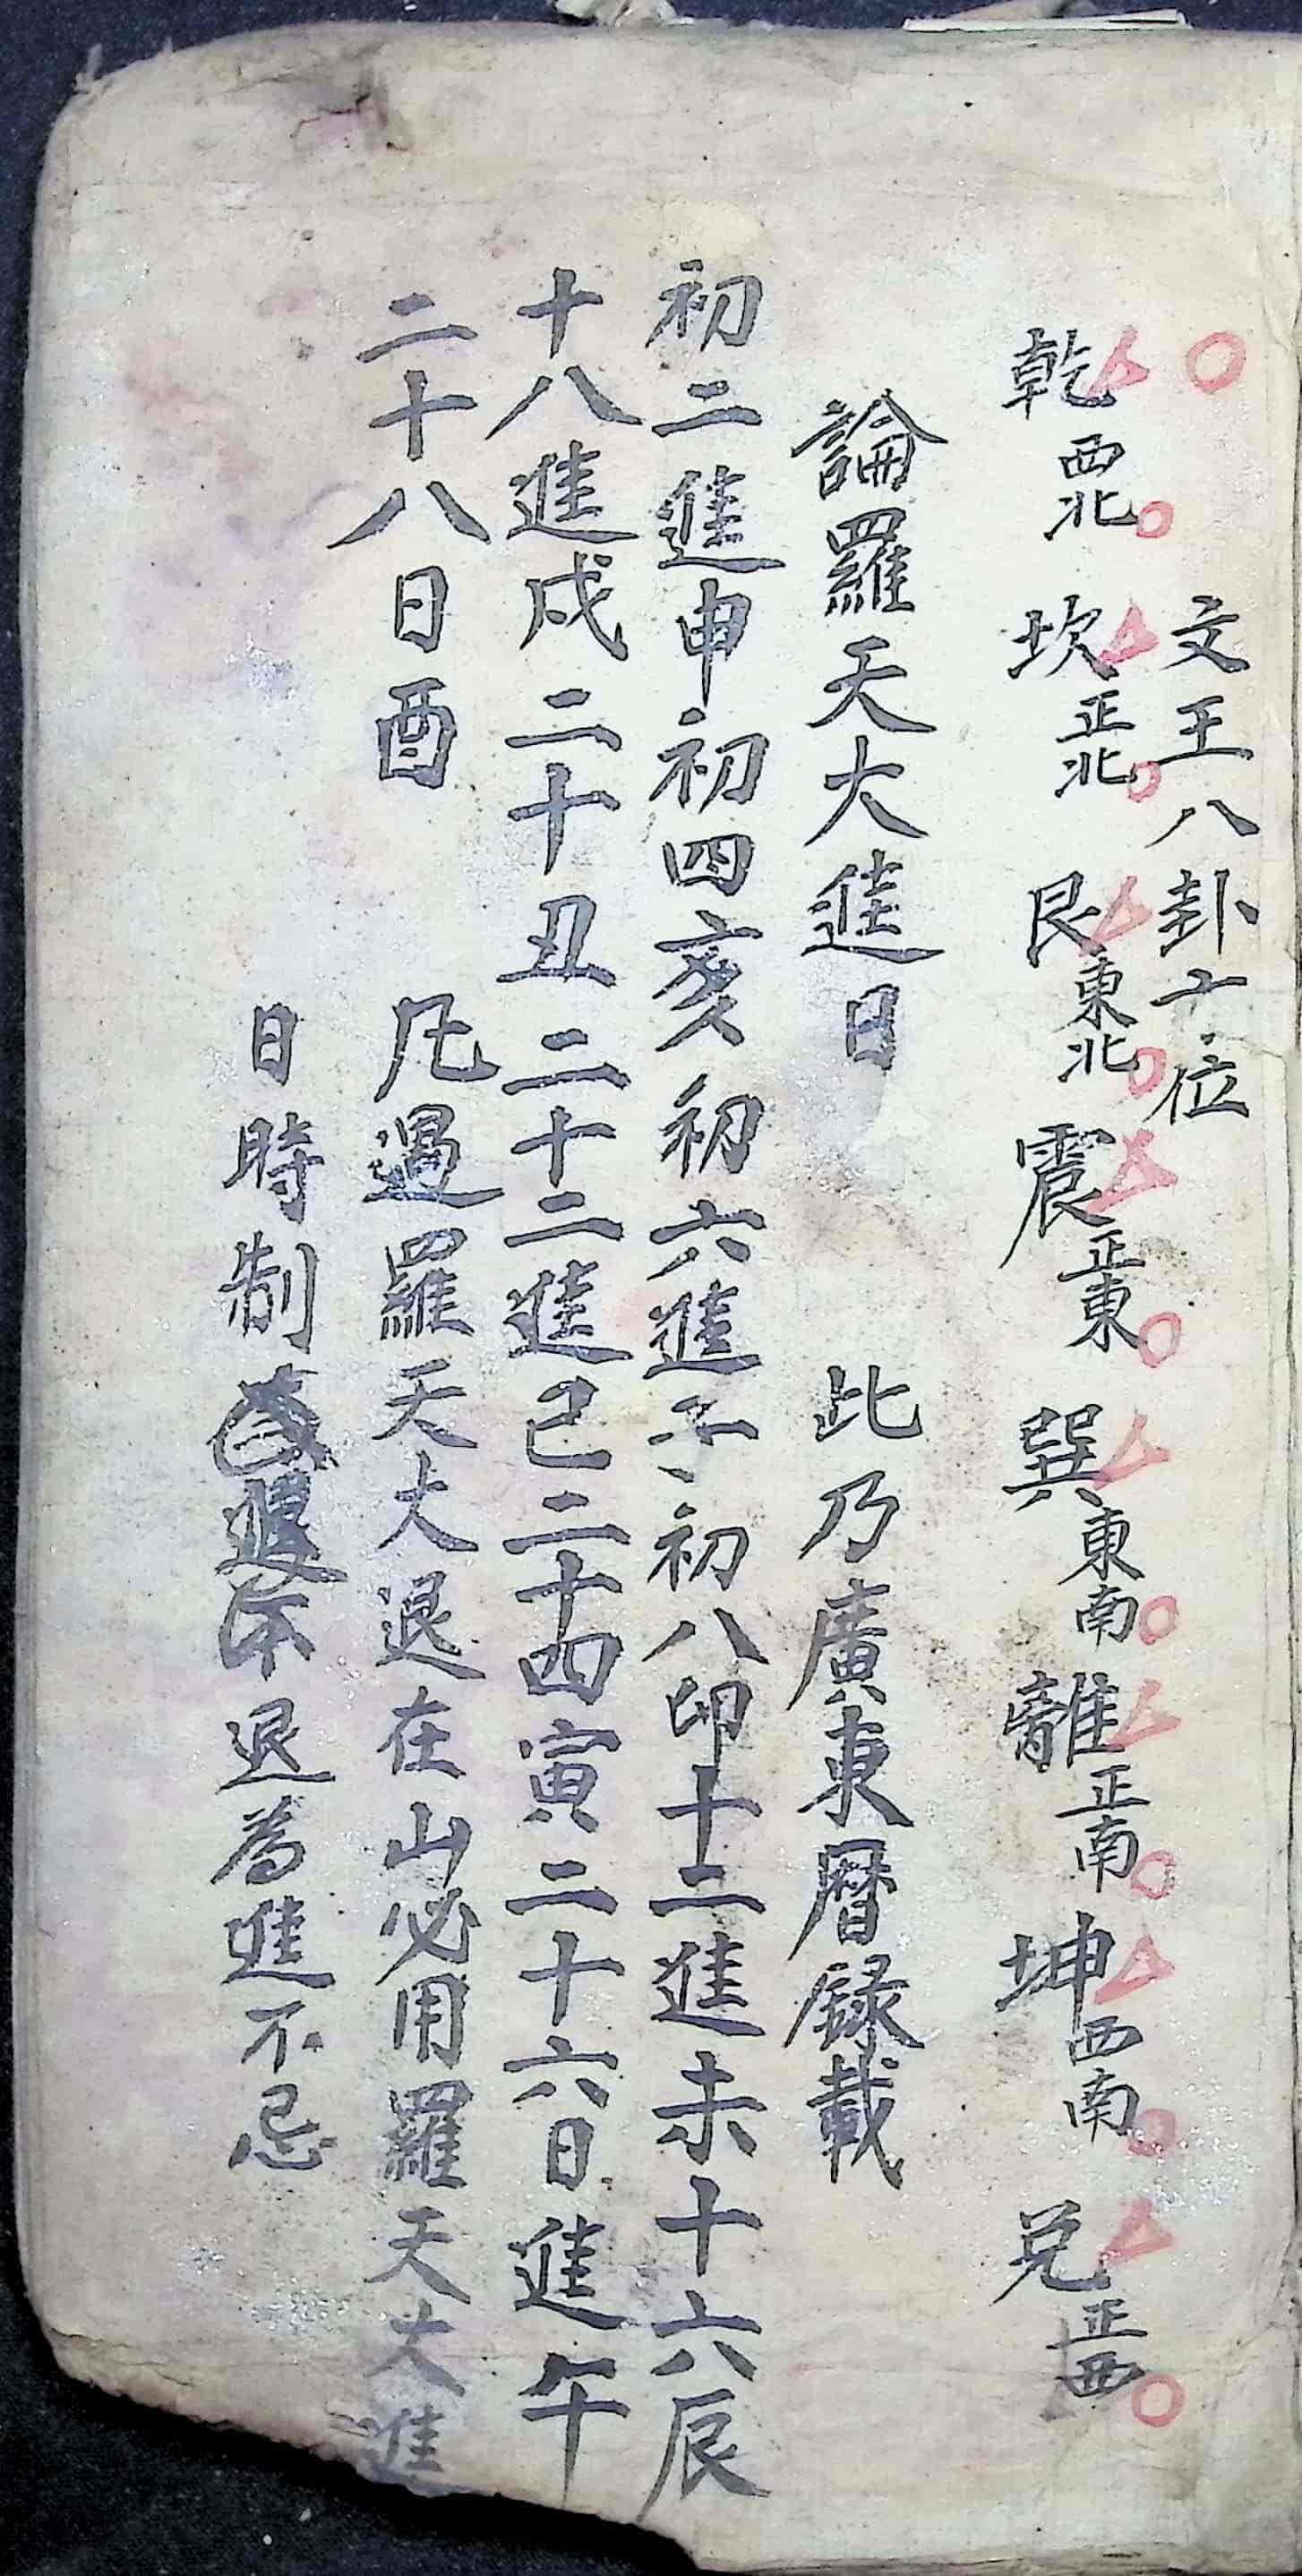 ○文王八卦十位
乾西北坎正北艮東北震正東巽東南離正南坤西南兌正西
論羅天大進日 此乃廣東曆録載
初二進申初四亥初六進子初八卯十二進未十六辰
十八進戌二十丑二十二進己二十四寅二十六日進午
二十八日酉 凡遇羅天大退在山必用羅天大進
日時制退為進不忌